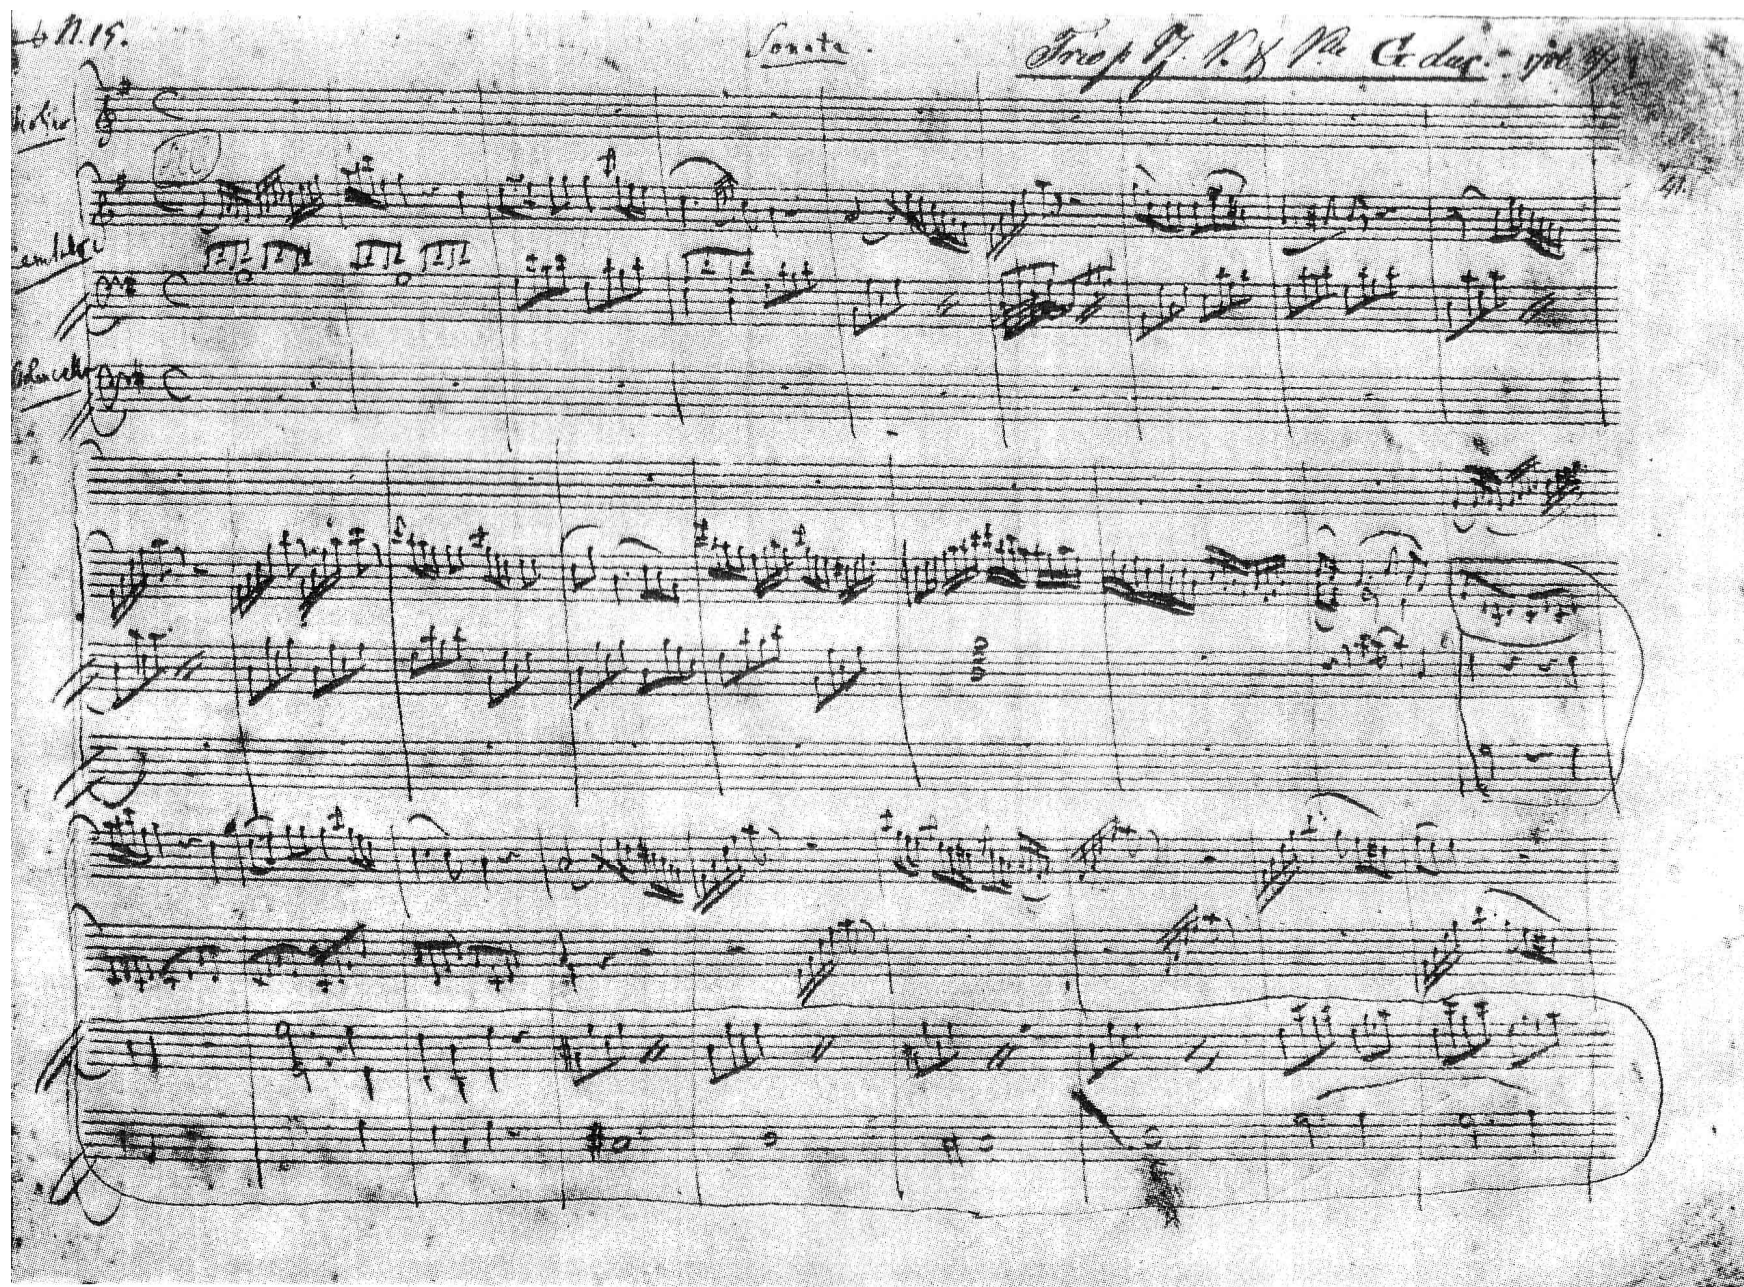 N. 15.
Sonata.
Trio p Pf. V. & Vlle G dur.
Violino
Cembalo
Violoncello